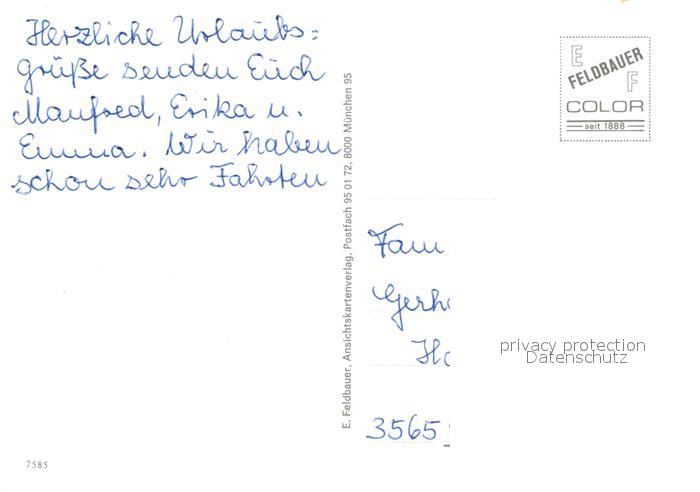 Herzliche Urlaubs=
grüße senden Euch
Manfred, Erika u.
Emma. Wir haben
schon sehr Fahrten
E. Feldbauer, Ansichtskartenverlag, Postfach 95 01 72, 8000 München 95
E
FELDBAUER
F
COLOR
seit 1888
Fam
Gerh
Ha
3565
privacy protection
Datenschutz
7585